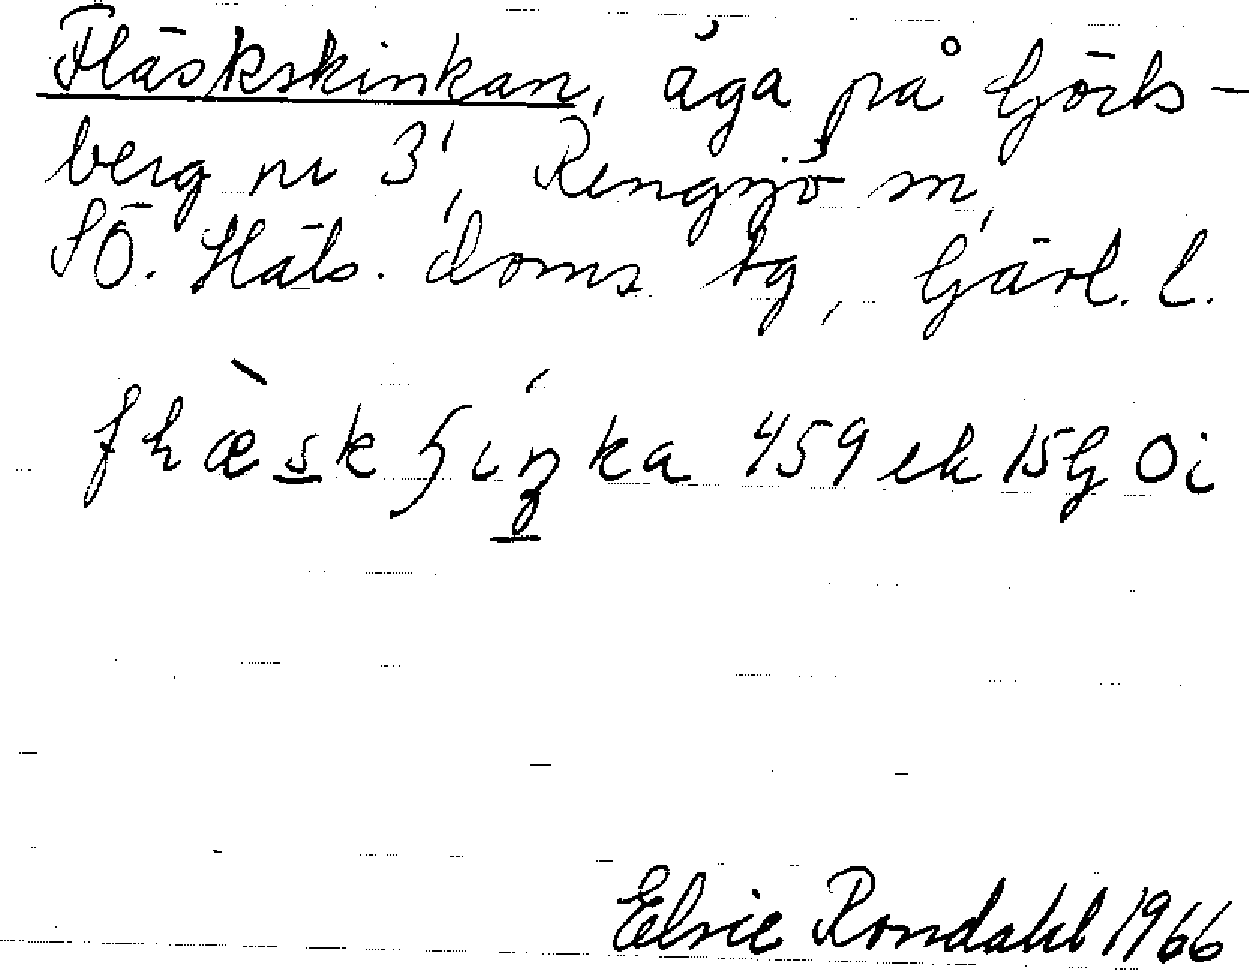 Fläskskinkan, äga på Görts-
berg nr 3, Rengsjö sn,
SÖ. Häls. doms tg, Gävl. l.
459 ek 15 G Oi
Elsie Rondahl 1966